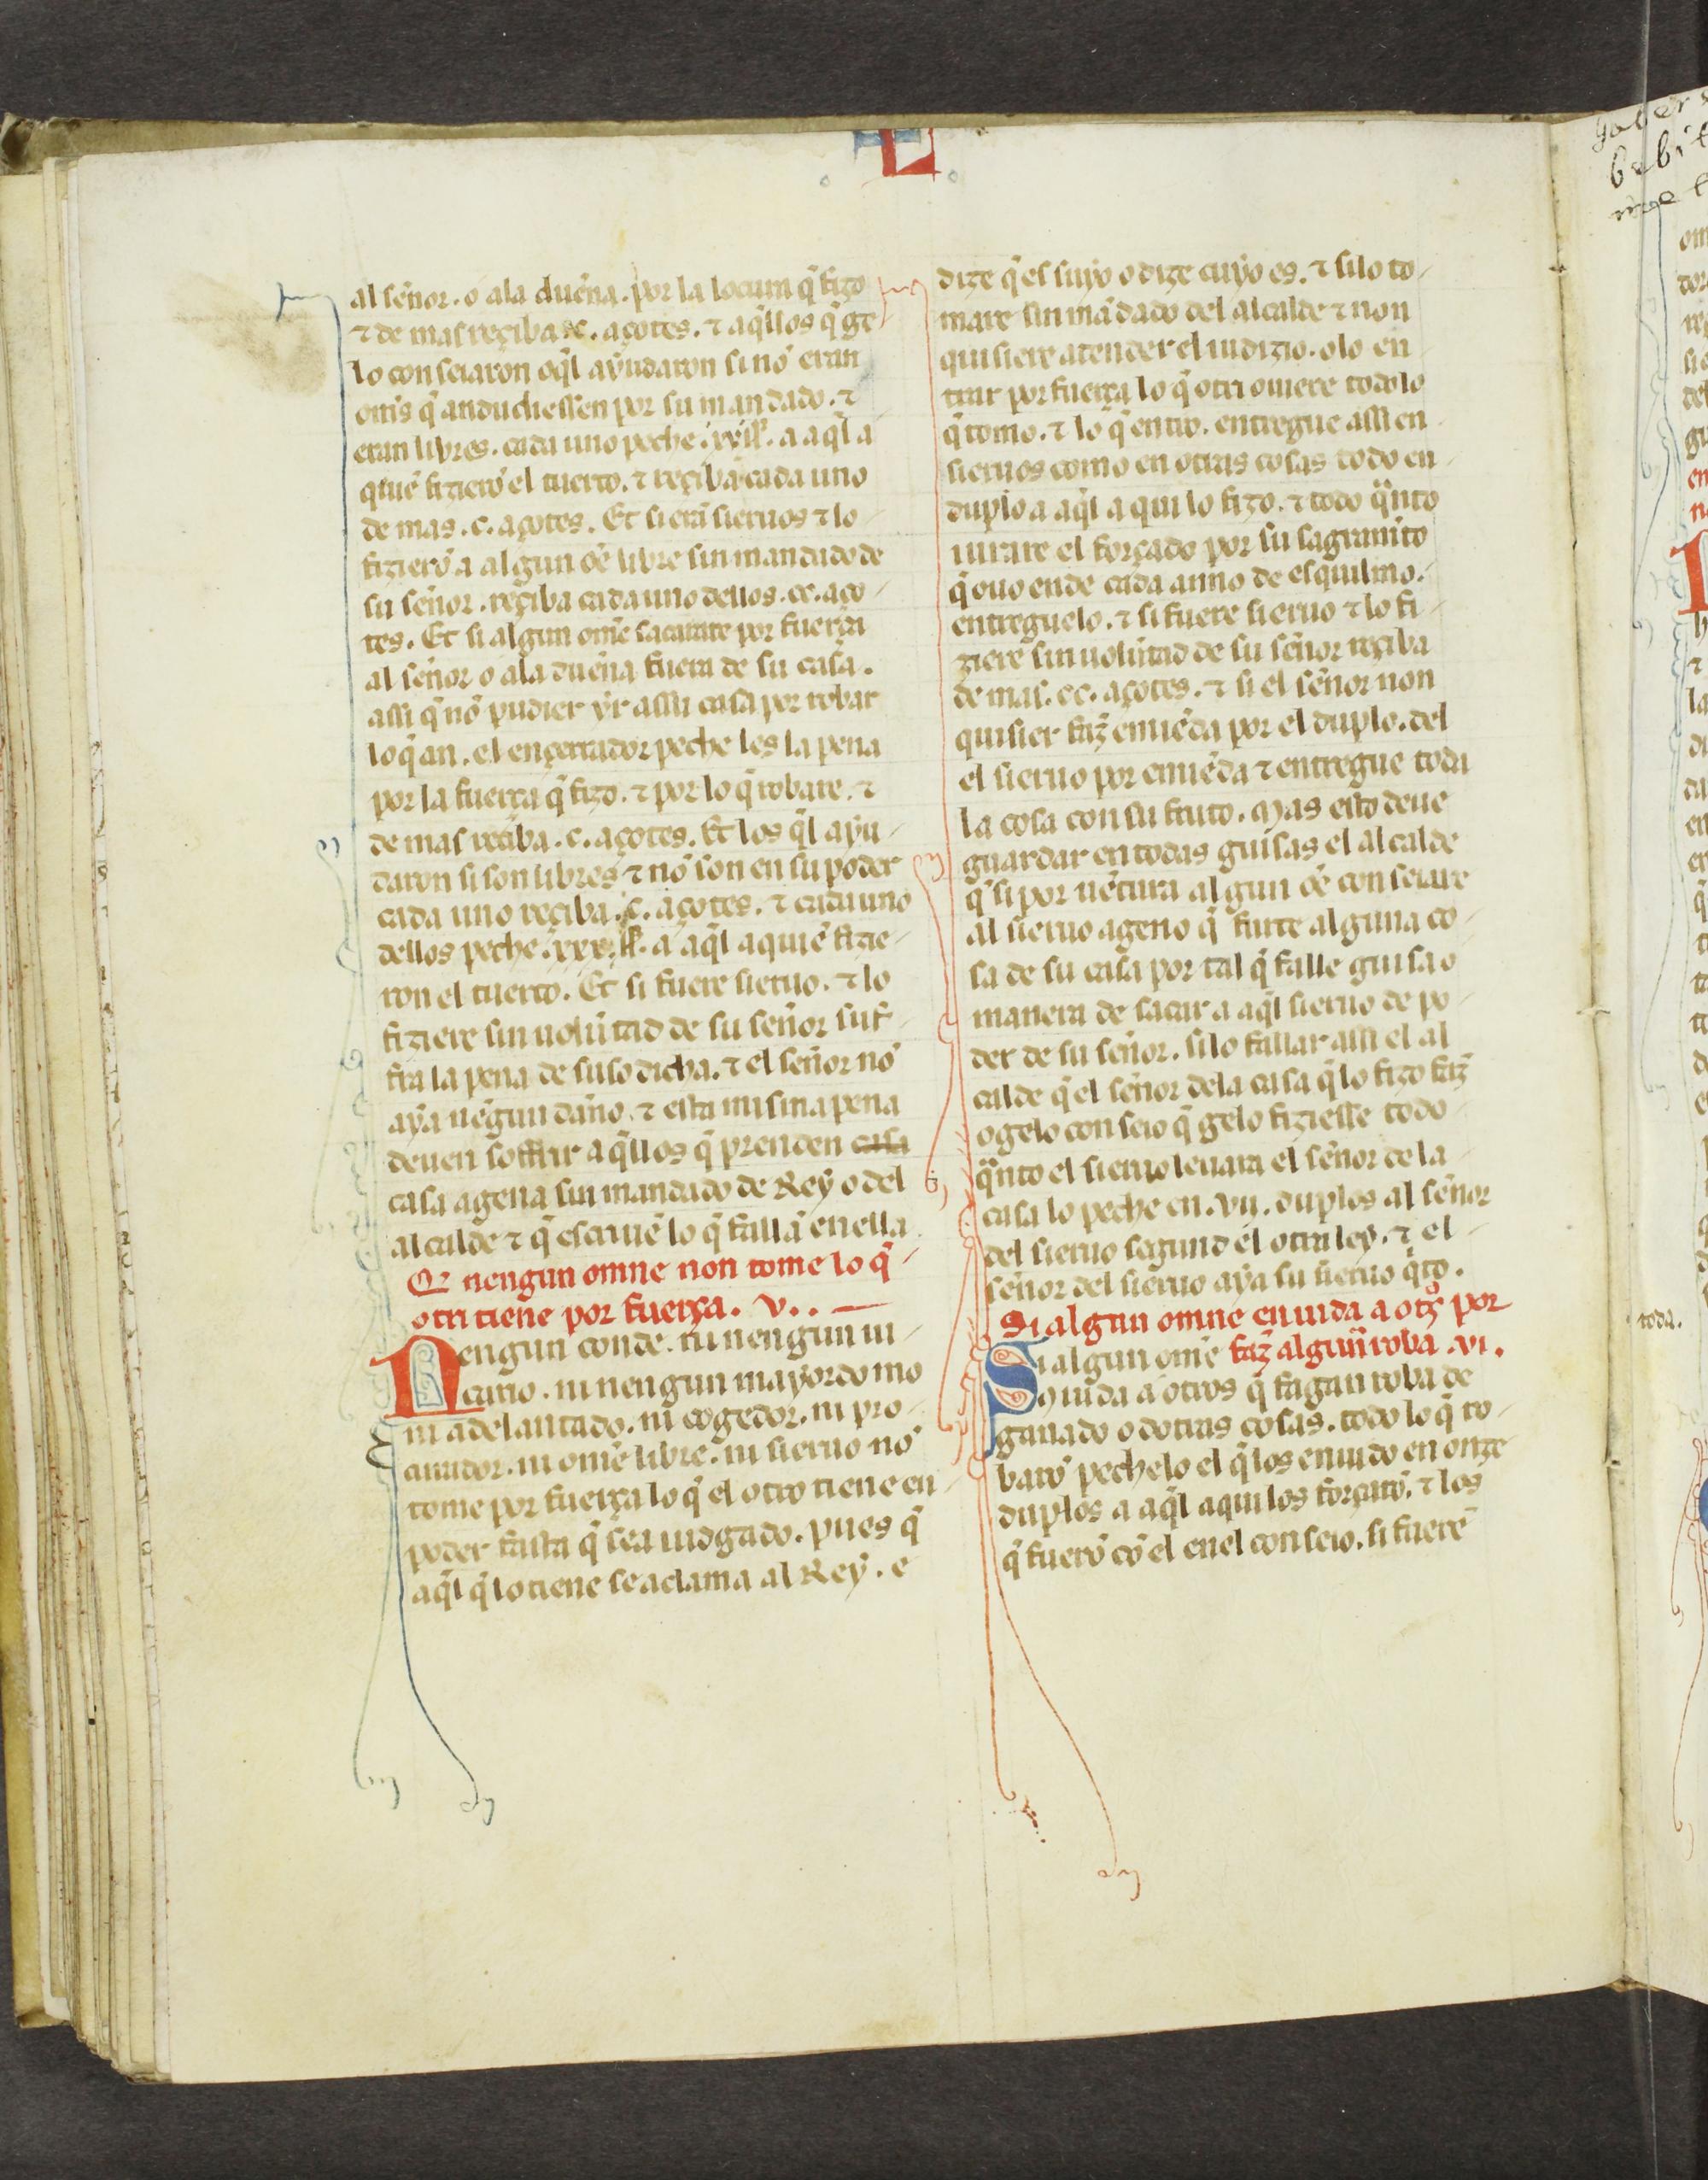 L
al señor. o ala dueña. por la locura q̃ fizo
⁊ de mas reçiba .c. açotes. ⁊ aq̃llos q̃ ge
lo conseiaron oq̃l ayudaron si nõ eran
om̃s q̃ anduchessen por su mandado. ⁊
eran libres. cada uno peche .xxx. ſſ. a aq̃l a
quiẽ fizierõ el tuerto. ⁊ reçiba cada uno
de mas .c. açotes. Et si erã sieruos ⁊ lo
fizierõ a algun oẽ libre sin mandado de
su señor. reçiba cada uno dellos .cc. aço
tes. Et si algun om̃e sacare por fuerça
al señor o ala dueña fuera de su casa.
assi q̃ nõ pudier yr assu casa por robar
lo q̃ an. el ençerrador peche les la pena
por la fuerça q̃ fizo. ⁊ por lo q̃ robare. ⁊
de mas reciba .c. açotes. Et los q̃l ayu
daron si son libres ⁊ nõ son en su poder
cada uno reçiba .c. açotes. ⁊ cada uno
dellos peche .xxx. ſſ. a aq̃l aquiẽ fizie
ron el tuerto. Et si fuere sieruo. ⁊ lo
fiziere sin uolũtad de su señor suf
fra la pena de suso dicha. ⁊ el señor nõ
aya nẽgun daño. ⁊ esta misma pena
deuen soffrir aq̃llos q̃ prenden casa
casa agena sin mandado de Rey o del
alcalde ⁊ q̃ escriuẽ lo q̃ fallã en ella
Q̃ nengun omne non tome lo q̃
otri tiene por fuerça. V..
Nengun conde. ni nengun ui
cario. ni nengun mayordomo
ni adelantado. ni cogedor. ni pro
curador. ni om̃e libre. ni sieruo nõ
tome por fuerça lo q̃ el otro tiene en
poder fasta q̃ sea iudgado. pues q̃
aq̃l q̃ lo tiene se aclama al Rey. e
dize q̃ es suyo o dize cuyo es. ⁊ si lo to
mare sin mãdado del alcalde ⁊ non
quisiere atender el iudizio. o lo en
trar por fuerça lo q̃ otri ouiere todo lo
q̃ tomo. ⁊ lo q̃ entro. entregue assi en
sieruos como en otras cosas todo en
duplo a aq̃l a qui lo fizo. ⁊ todo q̃nto
iurare el forçado por su sagramẽto
q̃ ouo ende cada anno de esquilmo.
entreguelo. ⁊ si fuere sieruo ⁊ lo fi
ziere sin uolũtad de su señor reçiba
de mas .cc. açotes. ⁊ si el señor non
quisier faz̃ emiẽda por el duplo. del
el sieruo por emiẽda ⁊ entregue toda
la cosa con su fruto. Mas esto deue
guardar en todas guisas el alcalde
q̃ si por uẽtura algun oẽ conseiare
al sieruo ageno q̃ furte alguna co
sa de su casa por tal q̃ falle guisa o
manera de sacar a aq̃l sieruo de po
der de su señor. si lo fallar assi el al
calde q̃ el señor dela casa q̃ lo fizo faz̃
o gelo conseio q̃ gelo fiziesse todo
q̃nto el sieruo leuara el señor de la
casa lo peche en .vij. duplos al señor
del sieruo segund el otra ley. ⁊ el
señor del sieruo aya su sieruo q̃to.
Si algun omne enuida a otͦs por
faz̃ algũa roba .vi.
Si algun om̃e
enuida a otros q̃ fagan roba de
ganado o dotras cosas. todo lo q̃ ro
barõ pechelo el q̃ los enuido en onze
duplos a aq̃l aqui los forçarõ. ⁊ los
q̃ fuerõ cõ el enel conseio. si fuerẽ
toda.